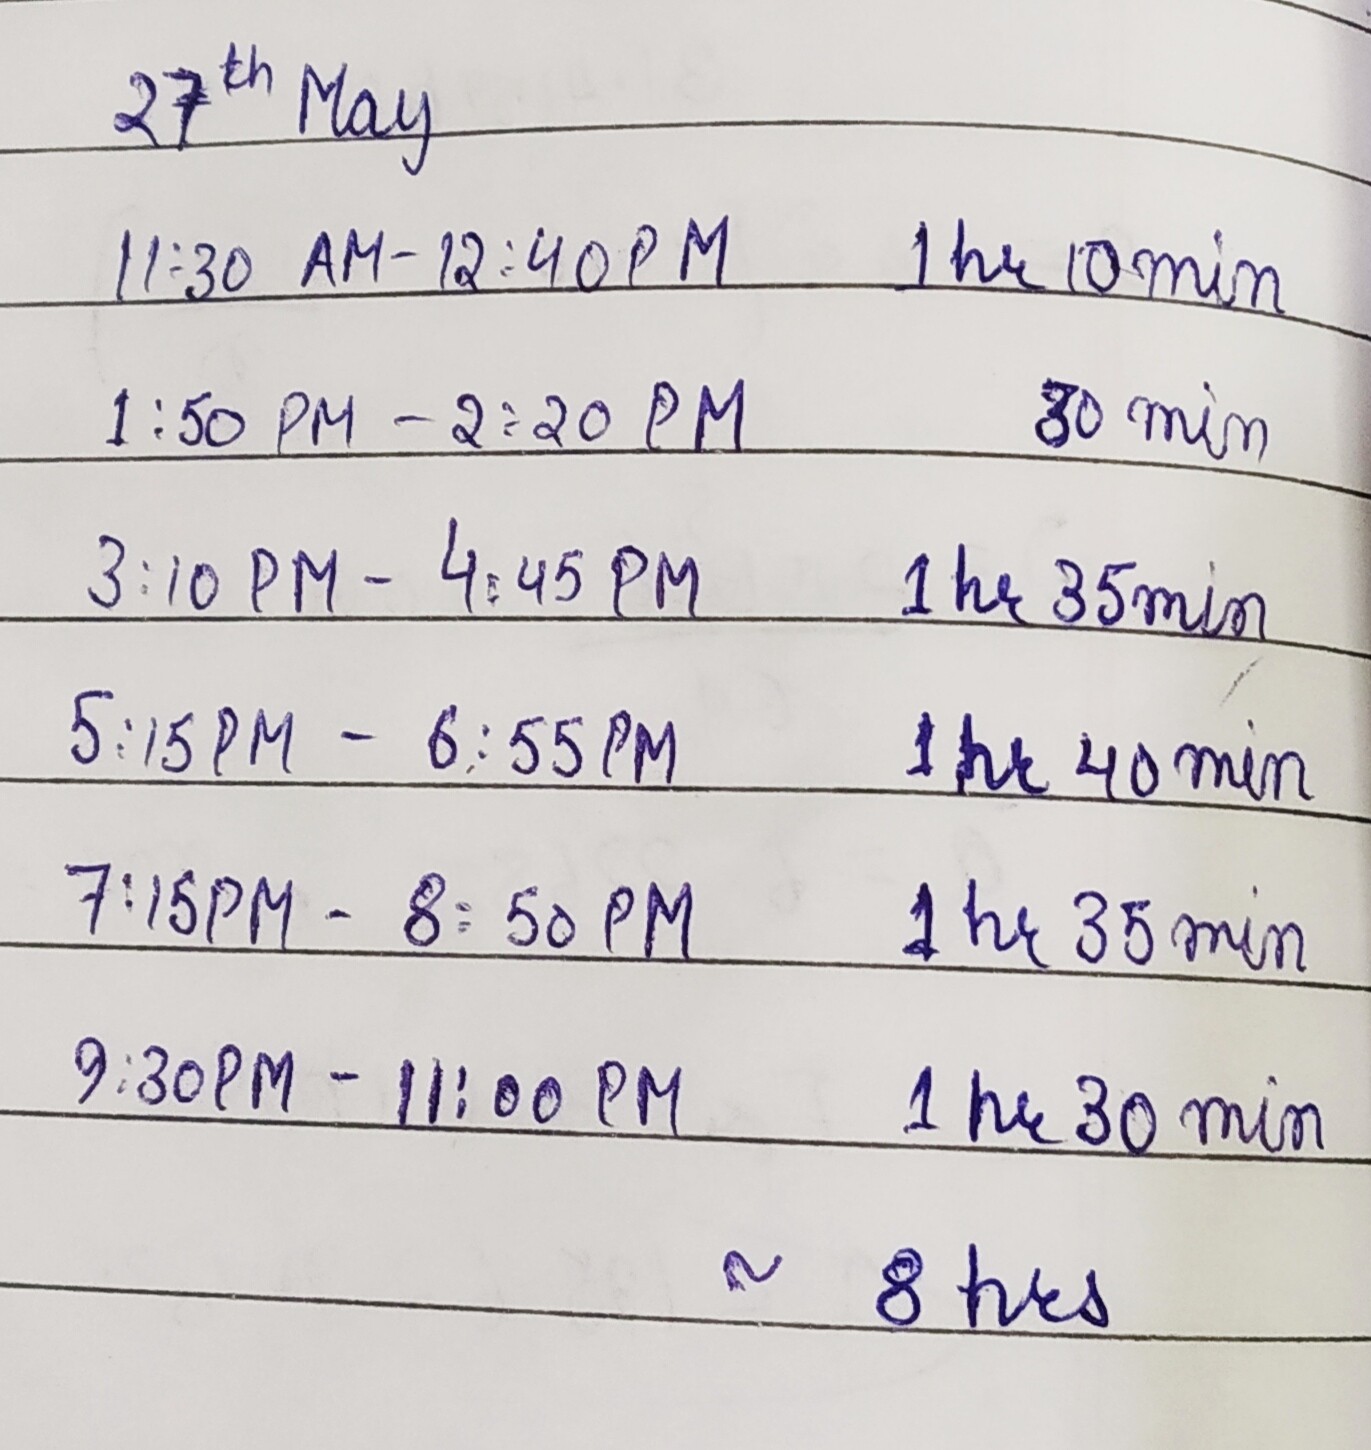 27th May
11:30 AM - 12:40 PM 1 hr 10 min
1:50 PM - 2:20 PM 30 min
3:10 PM - 4:45 PM 1 hr 35 min
5:15 PM - 6:55 PM 1 hr 40 min
7:15 PM - 8:50 PM 1 hr 35 min
9:30 PM - 11:00 PM 1 hr 30 min
~ 8 hrs